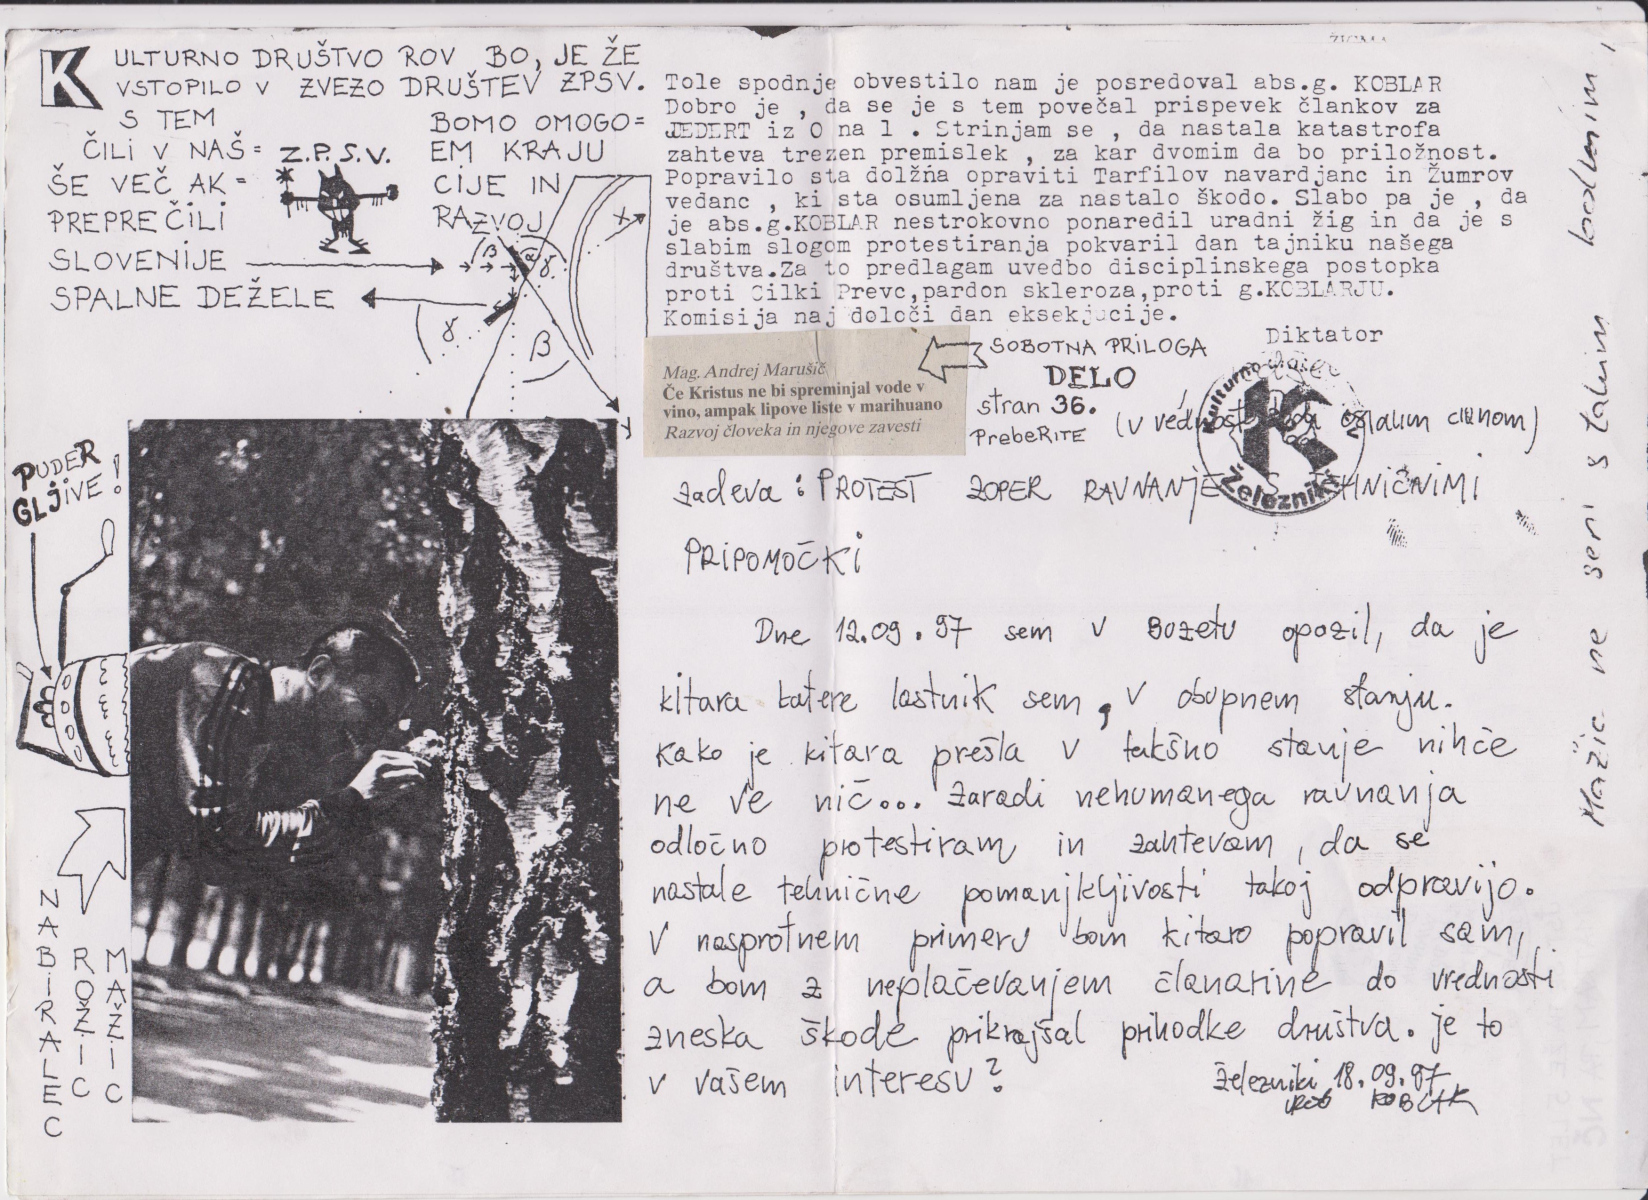 KULTURNO DRUŠTVO ROV BO, JE ŽE
VSTOPILO V ZVEZO DRUŠTEV ZPSV.
S TEM BOMO OMOGO=
ČILI V NAŠ= EM KRAJU
Z.P.S.V.
ŠE VEČ AK= CIJE IN
PREPREČILI RAZVOJ
SLOVENIJE
SPALNE DEŽELE
β α γ X
γ β
Y
PUDER
GLJIVE!
NABIRALEC
ROŽIC
MAŽIC
Tole spodnje obvestilo nam je posredoval abs.g. KOBLAR
Dobro je , da se je s tem povečal prispevek člankov za
JEDERT iz 0 na 1 . Strinjam se , da nastala katastrofa
zahteva trezen premislek , za kar dvomim da bo priložnost.
Popravilo sta dolžna opraviti Tarfilov navardjanc in Žumrov
vedanc , ki sta osumljena za nastalo škodo. Slabo pa je , da
je abs.g.KOBLAR nestrokovno ponaredil uradni žig in da je s
slabim slogom protestiranja pokvaril dan tajniku našega
društva.Za to predlagam uvedbo disciplinskega postopka
proti Cilki Prevc,pardon skleroza,proti g.KOBLARJU.
Komisija naj določi dan eksekjucije.
Diktator
Mag. Andrej Marušič
Če Kristus ne bi spreminjal vode v
vino, ampak lipove liste v marihuano
Razvoj človeka in njegove zavesti
SOBOTNA PRILOGA
DELO
stran 36.
PrebeRITE
Kulturno
K
Železniki
(v vednost ostalim članom)
zadeva : PROTEST ZOPER RAVNANJE S TEHNIČNIMI
PRIPOMOČKI
Dne 12.09.97 sem v Bozetu opozil, da je
kitara katere lastnik sem, v obupnem stanju.
Kako je kitara prešla v takšno stanje nihče
ne ve nič... Zaradi nehumanega ravnanja
odločno protestiram in zahtevam, da se
nastale tehnične pomanjkljivosti takoj odpravijo.
V nasprotnem primeru bom kitaro popravil sam,
a bom z neplačevanjem članarine do vrednosti
zneska škode prikrajšal prihodke društva. je to
v vašem interesu?
Železniki 18.09.97
UROŠ KOBLAR
Mažic ne seri s takim bodenim!